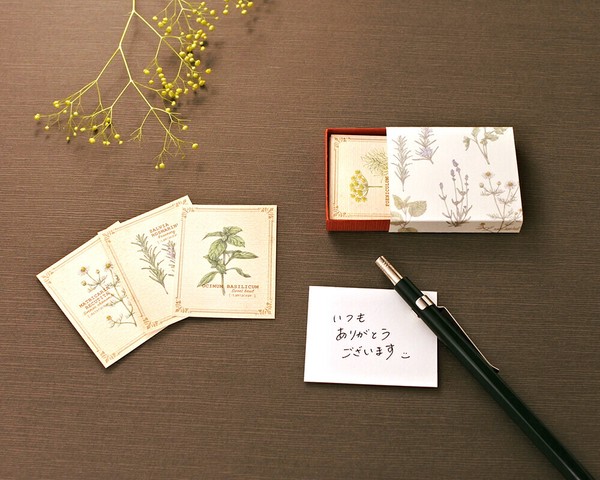 MATRICARIA
RECUTITA
SALVIA
ROSMARINUS
Rosemary
OCIMUM BASILICUM
Sweet basil
いつも
ありがとう
ございます